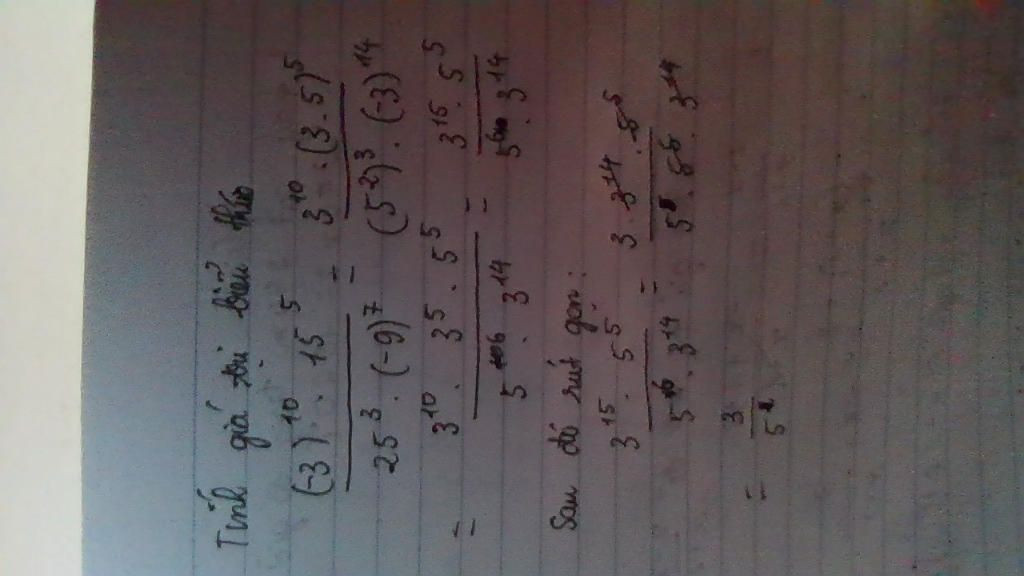 Tính giá trị biểu thức
(-3)^10 . 15^5 / 25^3 . (-9)^7 = 3^10 . (3.5)^5 / (5^2)^3 . (-3)^14
= 3^10 . 3^5 . 5^5 / 5^6 . 3^14 = 3^15 . 5^5 / 5^6 . 3^14
Sau đó rút gọn:
3^15 . 5^5 / 5^6 . 3^14 = 3 . 3^14 . 5^5 / 5 . 5^5 . 3^14
= 3 / 5